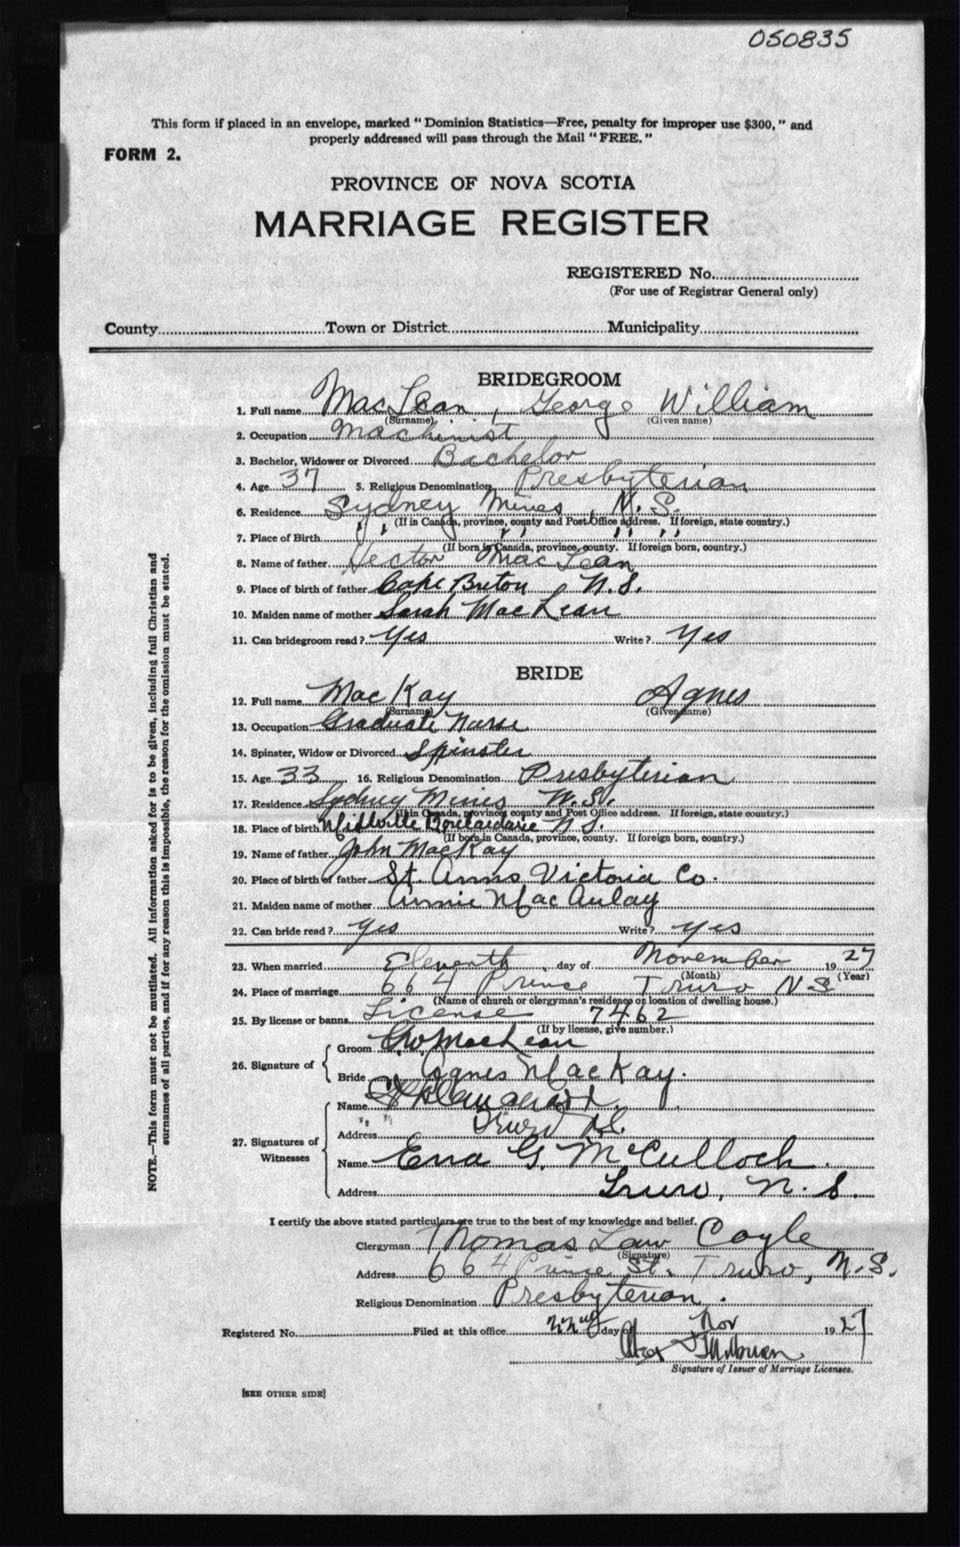 050835
This form if placed in an envelope, marked " Dominion Statistics—Free, penalty for improper use $300, " and
properly addressed will pass through the Mail " FREE. "
FORM 2.
PROVINCE OF NOVA SCOTIA
MARRIAGE REGISTER
REGISTERED No.
(For use of Registrar General only)
County Town or District Municipality
BRIDEGROOM
1. Full name MacLean, George William
(Surname) (Given name)
2. Occupation Machinist
3. Bachelor, Widower or Divorced Bachelor
4. Age 37 5. Religious Denomination Presbyterian
6. Residence Sydney Mines, N.S.
(If in Canada, province, county and Post Office address. If foreign, state country.)
7. Place of Birth " " " "
(If born in Canada, province, county. If foreign born, country.)
8. Name of father Hector MacLean
9. Place of birth of father Cape Breton N.S.
10. Maiden name of mother Sarah MacLean
11. Can bridegroom read? Yes Write? Yes
BRIDE
12. Full name MacKay Agnes
(Surname) (Given name)
13. Occupation Graduate Nurse
14. Spinster, Widow or Divorced Spinster
15. Age 33 16. Religious Denomination Presbyterian
17. Residence Sydney Mines N.S.
(If in Canada, province, county and Post Office address. If foreign, state country.)
18. Place of birth Millville Boulardarie N.S.
(If born in Canada, province, county. If foreign born, country.)
19. Name of father John MacKay
20. Place of birth of father St. Anns Victoria Co.
21. Maiden name of mother Annie MacAulay
22. Can bride read? Yes Write? Yes
23. When married Eleventh day of November 1927
(Month) (Year)
24. Place of marriage 664 Prince Truro N S
(Name of church or clergyman's residence or location of dwelling house.)
25. By license or banns License 7462
(If by license, give number.)
26. Signature of
Groom G.W. MacLean
Bride Agnes MacKay.
27. Signatures of Witnesses
Name
Address Truro N.S.
Name Ena G. McCulloch.
Address Truro, N.S.
I certify the above stated particulars are true to the best of my knowledge and belief.
Clergyman Thomas Law Coyle
(Signature)
Address 664 Prince St. Truro, N.S.
Religious Denomination Presbyterian.
Registered No. Filed at this office 22nd day of Nov 1927
Signature of Issuer of Marriage Licenses.
[SEE OTHER SIDE]
NOTE.—This form must not be mutilated. All information asked for is to be given, including full Christian and
surnames of all parties, and if for any reason this is impossible, the reason for the omission must be stated.